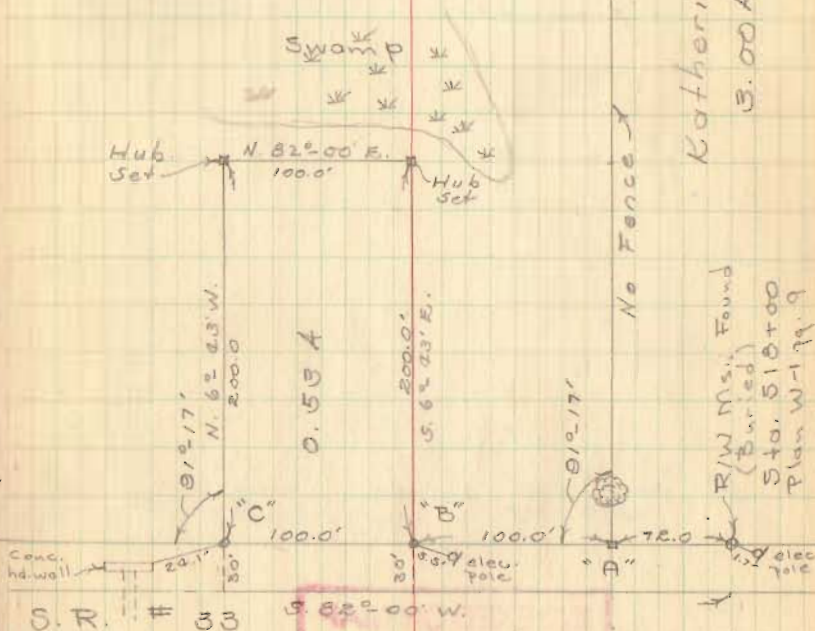 Kather
3.00 A
Swamp
Hub
Set
N. 82°-00' E.
100.0'
Hub
Set
No Fence
91°-17'
N. 6°-43' W.
200.0
0.53 A
200.0'
S. 6°-43' E.
91°-17'
R/W Mon. Found
(Buried)
Sta. 518+00
Plan W-1 pg. 9
"C"
100.0'
"B"
100.0'
"A"
72.0
Conc.
hd. wall
24.1'
30'
30'
5.5
elec.
pole
1.7
elec
pole
S. R. # 33
S. 82°-00' W.